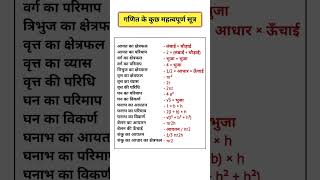 गणित के कुछ महत्वपूर्ण सूत्र
आयत का क्षेत्रफल - लंबाई × चौड़ाई
आयत का परिमाप - 2 × (लंबाई + चौड़ाई)
वर्ग का क्षेत्रफल - भुजा × भुजा
वर्ग का परिमाप - 4 × भुजा
त्रिभुज का क्षेत्रफल - 1/2 × आधार × ऊँचाई
वृत्त का क्षेत्रफल - πr²
वृत्त का व्यास - 2r
वृत्त की परिधि - 2πr
घन का परिमाप
घन का विकर्ण - √3 × भुजा
घनाभ का आयतन - l × b × h
घनाभ का परिमाप - 2(l + b) × h
घनाभ का विकर्ण - √(l² + b² + h²)
बेलन का आयतन - πr2h
बेलन की ऊँचाई - आयतन / πr2
शंकु का आयतन - 1/3 πr2h
शंकु का आधार का क्षेत्रफल - πr2
वर्ग का परिमाप
त्रिभुज का क्षेत्रफल
वृत्त का क्षेत्रफल
वृत्त का व्यास
वृत्त की परिधि
घन का परिमाप
घन का विकर्ण
घनाभ का आयतन
घनाभ का परिमाप
आधार × ऊँचाई